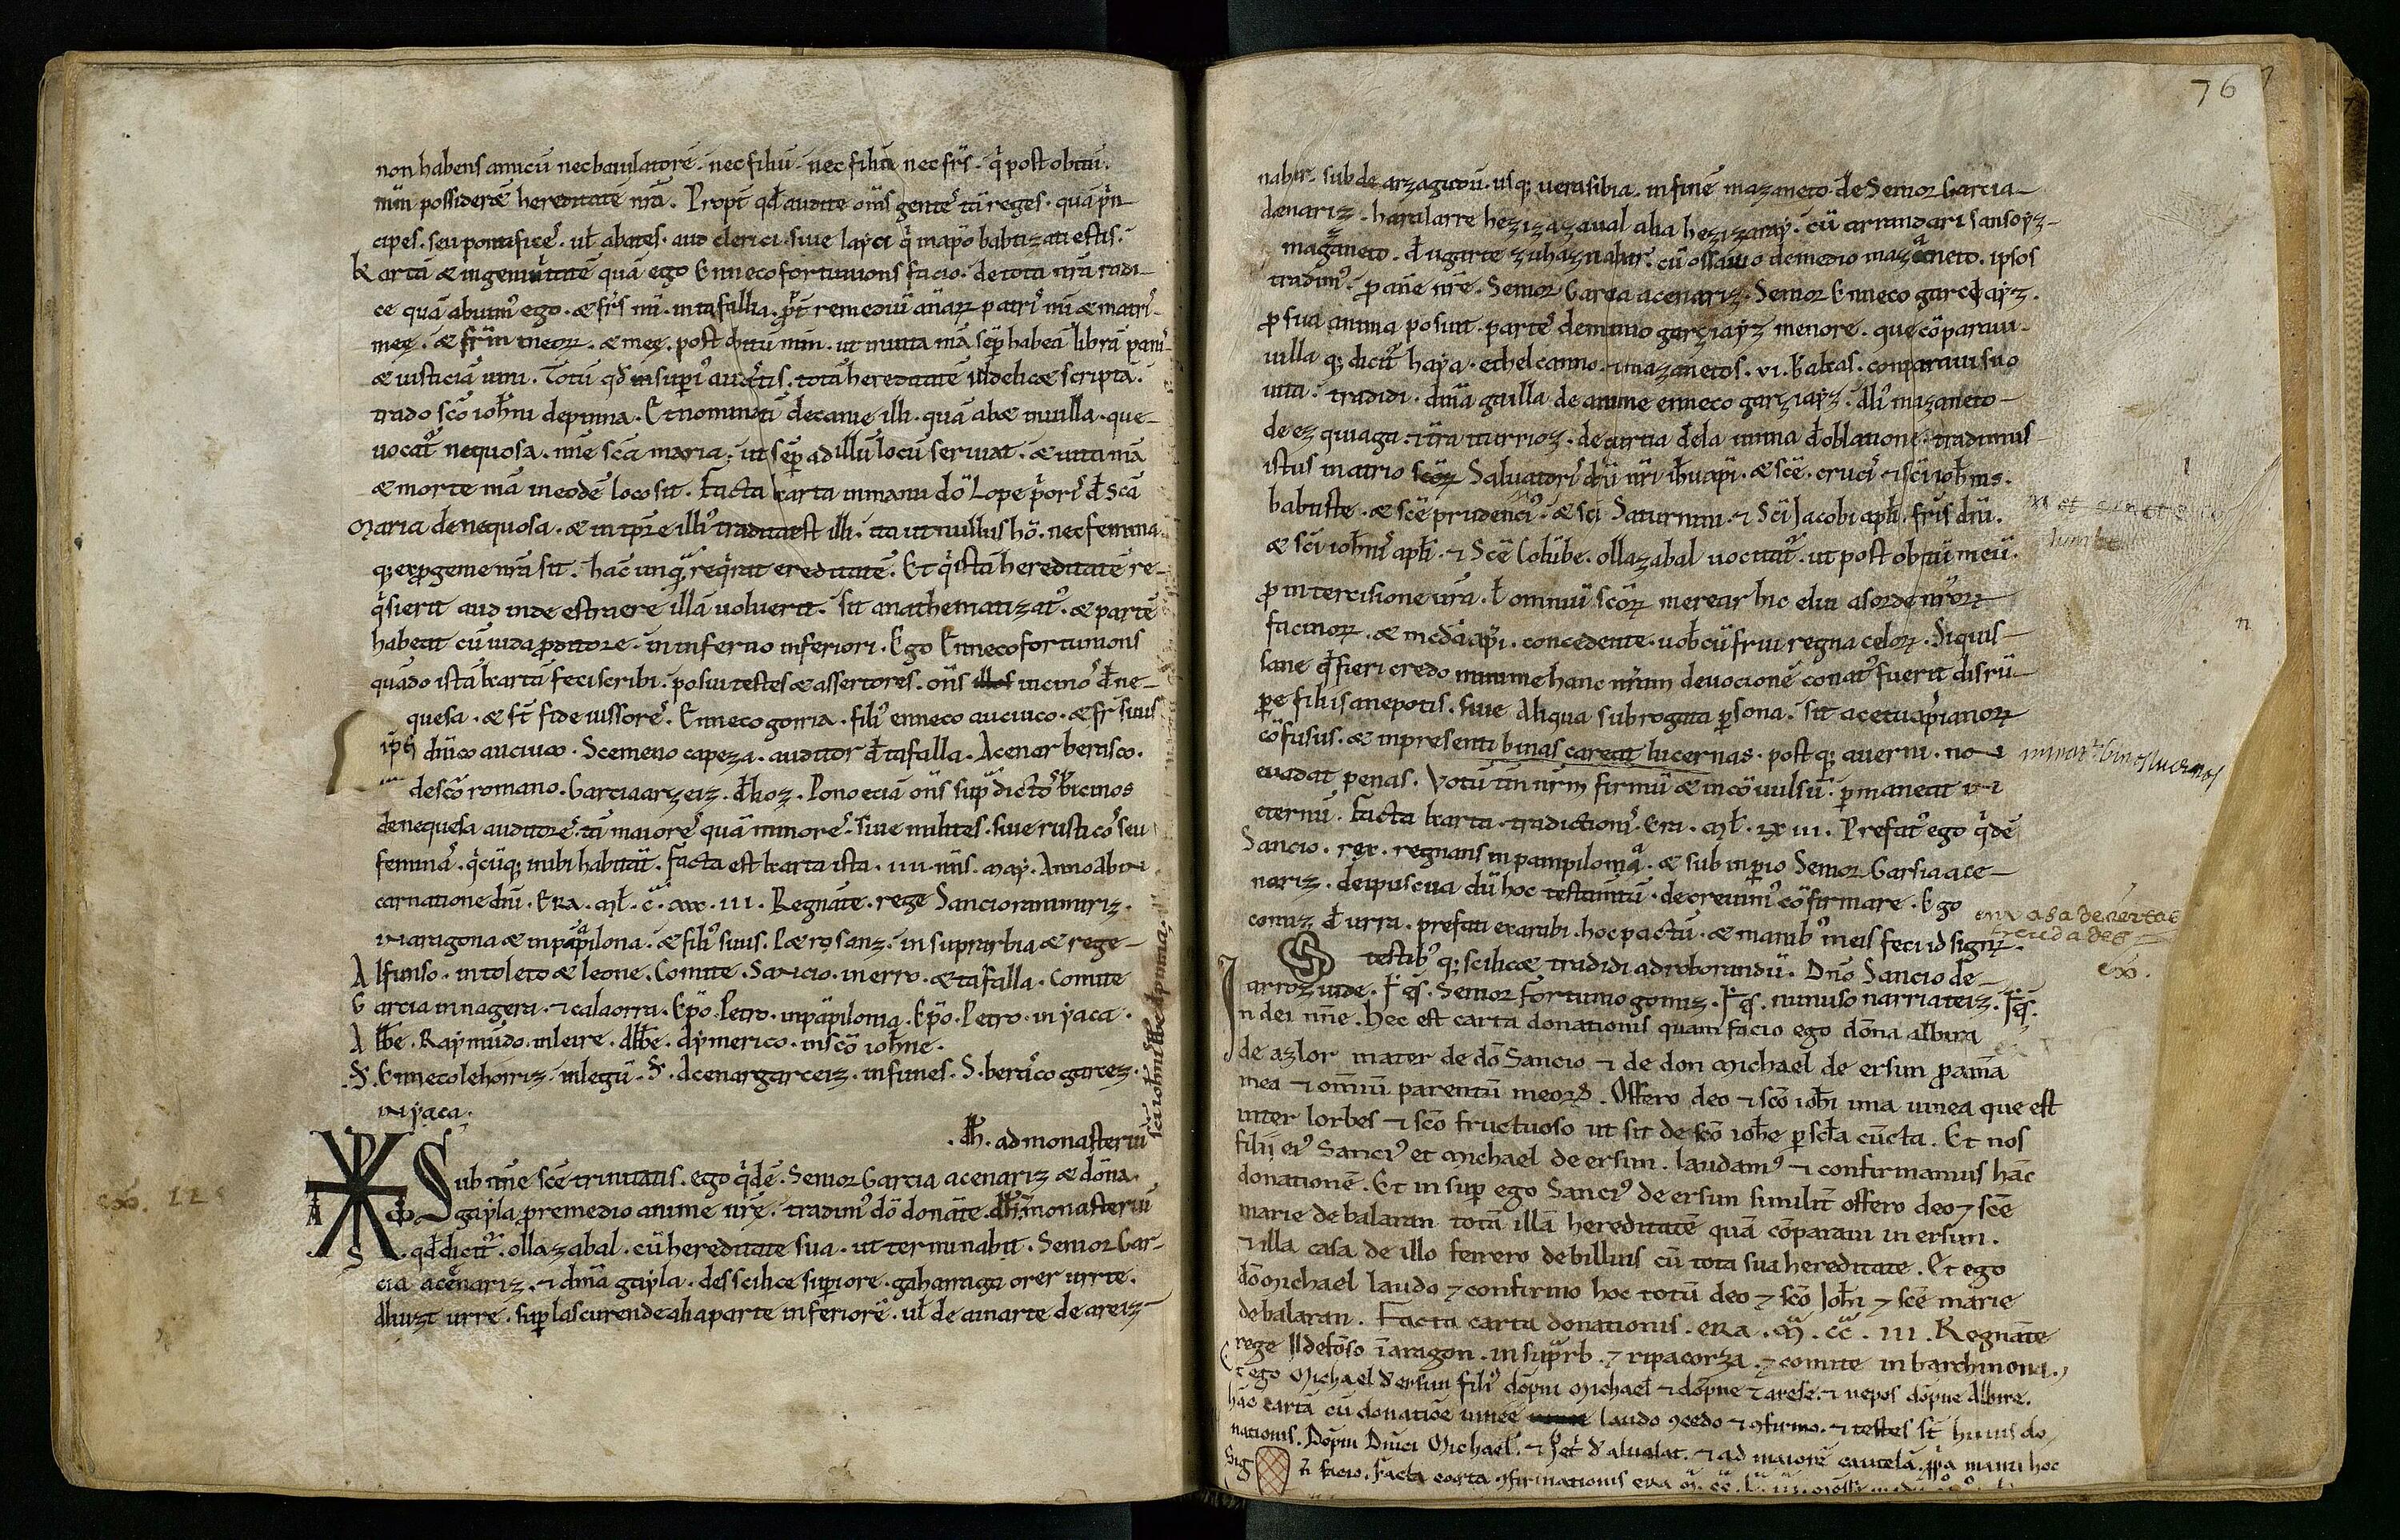 non habens amicū nec baiulatorē. nec filiū. nec filiā nec frīs. q̇ post obitū.
mūn possiderē hereditatē mā. Propt̄ qđ audite om̄s gentē tā reges. quā p̄n
cipes. seu pontificē. ut abates. aud clerici. siue layci q̇ in xp̄o babtizati estis.
k artā & ingenuitatē quā ego Enneco fortunions facio. de tota mā radi-
ce quā abuim᾿ ego. & frīs mī. in tafallia. p̄t remediū anīaꝝ patrī mī & matrī
meę. & frūm meoꝝ. & meę. post obitū mūn. ut in uita mā sep̄ habeā librā pani
& iusticiā uini. Totū qđ insuperi᾿ auditis. totā hereditatē uidelicet scriptā.
trado scō ioħni de pinna. Et nominatī decanie illi. quā abæ in uilla. que
uocat᾿ nequosa. nn̄e scā maria. ut sep̄ ad illū locū seruiat. & uita mā
& morte mā in eodē loco sit. Facta karta in manu dō Lope p̄ori᾿ đ scā
Maria de nequosa. & in tp̄re illi᾿ tradita est illi. ita ut nullus hō. nec femina.
q; ex p̄genie mā sit. hāc unq̄ reqrat ereditatē. Et q̇ istā hereditatē re-
q̇sierit aud inde estraere illā uoluerit. sit anathematizat᾿. & partē
habeat cū iuda p̄ditore. in inferno inferiori. Ego Enneco fortunions
quādo istā kartā feci scribi. posui testes & assertores. om̄s uicino᾿ đ ne-
quesa. & st̄ fide iussorē. Enneco gomia. fili᾿ enneco aucuico. & fr̄ suus
diuco aucuico. Scemeno capeza. auditor đ tafalla. Acenar berasco.
de scō romano. Garcia arceiz. đ koz. Pono eciā om̄s sup̄ dictō bicinos
de nequesa auditorē. tā maiorē quā minorē. siue milites. siue rusticō seu
feminā. q̇cūq; inibi habitāt. Facta est karta ista. IIII. nn̄s. may. Anno ab in
carnatione dn̄i. ERA. Mł. c̄. xxx. III. Regnāte. rege Sancio ranimiriz.
in aragona & in pāpilona. & fili᾿ suus. Pæro sanz. in suprarbia & rege-
A lfunso. in toleto & leone. Comite. Sancio. in erro. & tafalla. Comite
G arcia in nagera. & calaorra. Ep̄o. Petro. in pāpilona. Ep̄o. Petro. in yaca.
A bbe. Raymūdo. in leire. Abbe. Aymerico. in scō ioħne.
S. Enneco lehoiriz. in legū. S. Acenar garceiz. in funes. S. beraco garcez.
in yaca.
.đħ. ad monasteriū
scī ioħnis đ pinna.
Sub nn̄e scē trinitatis. ego q̇dē. Senior Garcia acenariz & dōna
gayla p̄ remedio anime nrē. tradim᾿ dō donāte monasteriū
qđ dicit᾿. ollazabal. cū hereditate sua. ut terminabit. Senior Gar-
cia acenariz. & dn̄a gayla. des scilice superiore. gaharraga orer urrte.
Ahuzt urre. sup̄ lascurende alia parte inferiorē. ut de amarte de areiz
ex.
76
nabar. sub de arzagitoū. usq; uerasibia. in finē mazaneto de Senior Garcia-
denariz. haralarre hezizazaual alia hezizaray. cū arrandari sansoyz-
magāneto. đ ugarte zuhaznabar. cū ossauio de medio mazāneto. ipsos
tradim᾿. p̄ anīe nrē. Senior Garcia acenariz. Senior Enneco garceayz.
p̄ sua anima posuit. partē de nunno garciayz menore. que cōparaui
uilla q; dicit᾿ haya. ethelcanno. & mazanetos. VI. kabas. comparaui suo
uita. tradidi. dn̄a gailla de anime enneco garciayz. ali᾿ mazaneto
de ezquiaga. & ūa iturrioz. de curtia de la uinna đ oblationē. tradimus
istus in atrio scōꝝ Saluatori᾿ dn̄i nr̄i ihu xp̄i. & scē. cruci᾿. & sci ioħnis.
babtiste. & scē prudenci᾿. & sci Saturnini. & Sci Jacobi apłi. fr̄is dn̄i.
& sci ioħni᾿ apłi. & Scē Colūbe. ollazabal uocitat᾿. ut post obitū meū.
p̄ intercisione urā. ł omniū scōꝝ merear hic elui a sorde mōꝝ
facinoꝝ. & in c̄đa xp̄i. concedente. uob̄cū frui regna celoꝝ. Siquis-
sane qđ fieri credo minime hanc nrām deuocionē conat᾿ fuerit disrū-
pe filiis anepotis. siue Aliqua subrogata p̄sona. sit a cetu xp̄ianoꝝ
cōfusus. & in presenti binas careat lucernas. postq; auerni. no-
euadat penas. Votū tn̄ nrm̄ firmū & incōuulsū. p̄maneat in
eternū. Facta karta. tradictioni᾿. Era. Mł. LX III. Prefat᾿ ego q̇dē
Sancio. rex. regnans in pampilonia. & sub inp̄io Senior Garsia ace-
nariz. de ipuscua dū hoc testamtū. decreuim᾿ cōfirmare. Ego
comiz. đ urra. prefati exarabi. hoc pactū. & manib᾿ meis feci id signꝝ.
testib᾿ q; scilicæ tradidi ad roborandū. Dn̄o Sancio de-
arroziude. Senior fortunio gomiz. nunuso narriateiz.
In dei nn̄e. hec est carta donationis quam facio ego dōna albira
de azlor mater de dō Sancio & de don Michael de ersun p̄ anīa
mea & om̄iū parentū meoꝝ. Offero deo & scō ioħi una uinea que est
inter lorbes & scō fructuoso ut sit de scō ioħe p̄ scła cūcta. Et nos
filii ei᾿ Sanci᾿ et Michael de ersun. laudam᾿ & confirmamus hāc
donationē. Et insup̄ ego Sanci᾿ de ersun similit̄ offero deo & scē
marie de balaran totā illā hereditatē quā cōparaui in ersun.
& illa casa de illo ferrero de billius cū tota sua hereditate. Et ego
dō Michael laudo & confirmo hoc totū deo & scō Ioħi & scē marie
de balaran. Facta carta donationis. ERA. M̄. cc̄. III. Regnāte
rege Ildefōso ī aragon. in sup̄rb. & ripacorza. & comite in barchinona.
Et ego Michael đ ersun fili᾿ dōpni Michael & dōpne Tarese. & nepos dōpne Albire.
hāc cartā cū donatiōe uinee laudo ꝯcedo & ꝯfirmo. & testes st̄ huius do
nationis. Dōpni Dinci Michael. & Pet᾿ đ alualat. & ad maiorē cautelā. p̄pa manu hoc
Sig nū facio. Facta carta ꝯfirmationis era